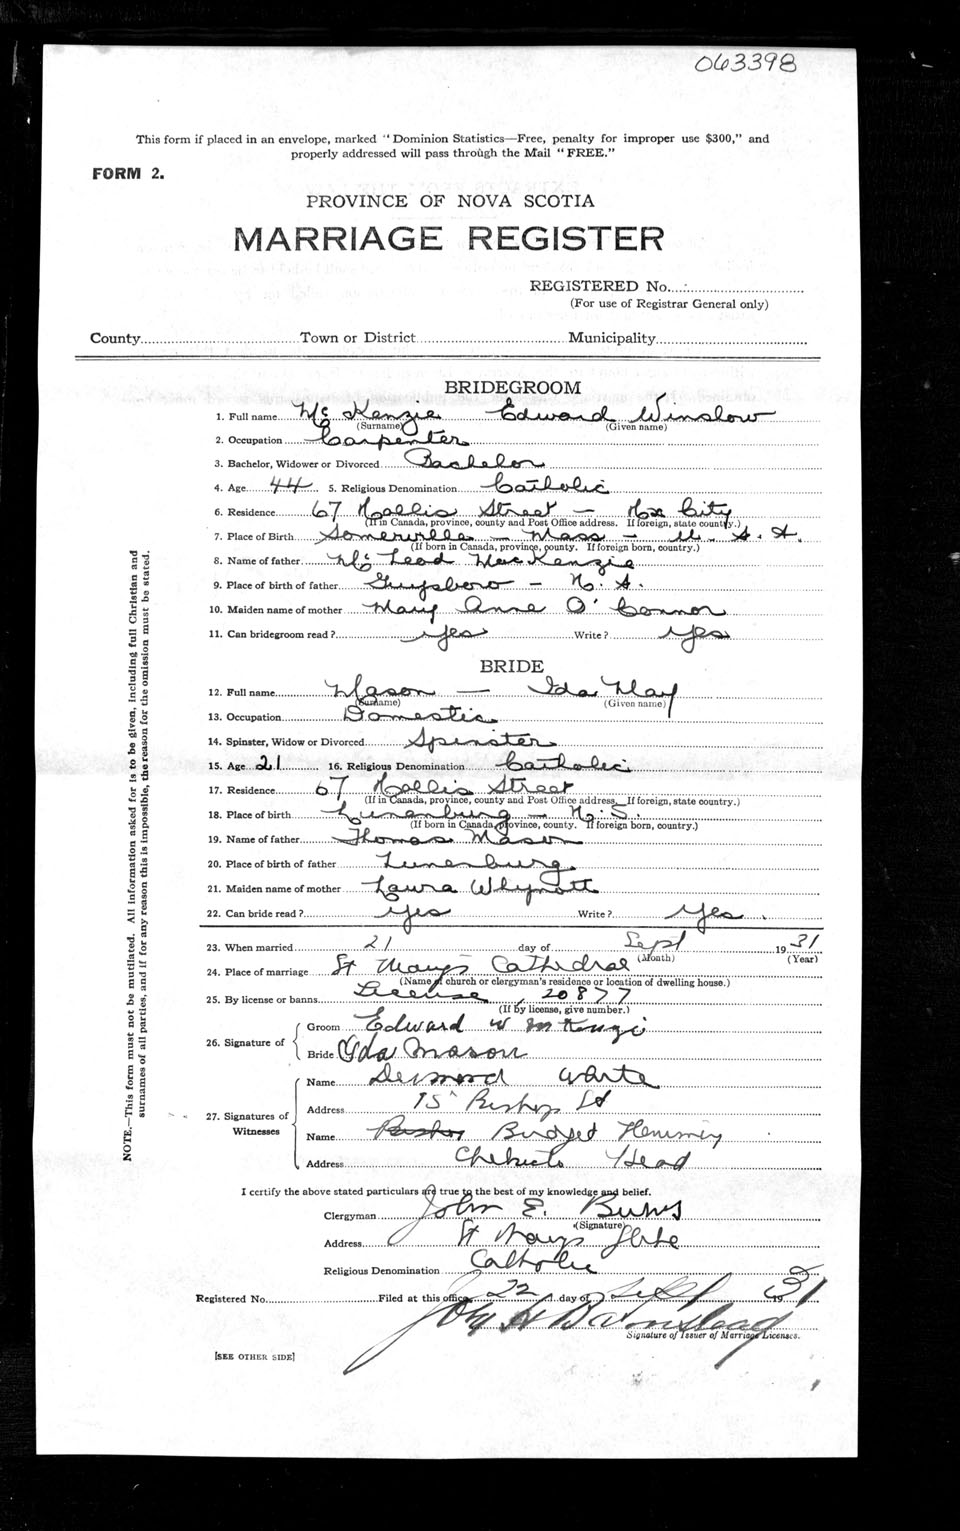 063398
This form if placed in an envelope, marked "Dominion Statistics—Free, penalty for improper use $300," and
properly addressed will pass through the Mail "FREE."
FORM 2.
PROVINCE OF NOVA SCOTIA
MARRIAGE REGISTER
REGISTERED No.
(For use of Registrar General only)
County Town or District Municipality
BRIDEGROOM
1. Full name Mc Kenzie Edward Winslow
(Surname) (Given name)
2. Occupation Carpenter
3. Bachelor, Widower or Divorced Bachelor
4. Age 44 5. Religious Denomination Catholic
6. Residence 67 Hollis Street — Hx City
(If in Canada, province, county and Post Office address. If foreign, state country.)
7. Place of Birth Somerville — Mass — U.S.A.
(If born in Canada, province, county. If foreign born, country.)
8. Name of father Mc Leod MacKenzie
9. Place of birth of father Guysboro — N.S.
10. Maiden name of mother Mary Anne O'Connor
11. Can bridegroom read? Yes Write? Yes
BRIDE
12. Full name Mason — Ida May
(Surname) (Given name)
13. Occupation Domestic
14. Spinster, Widow or Divorced Spinster
15. Age 21 16. Religious Denomination Catholic
17. Residence 67 Hollis Street
(If in Canada, province, county and Post Office address. If foreign, state country.)
18. Place of birth Lunenburg — N.S.
(If born in Canada, province, county. If foreign born, country.)
19. Name of father Thomas Mason
20. Place of birth of father Lunenburg
21. Maiden name of mother Laura Whynott
22. Can bride read? Yes Write? Yes.
23. When married 21 day of Sept 1931
(Month) (Year)
24. Place of marriage St Mary's Cathedral
(Name of church or clergyman's residence or location of dwelling house.)
25. By license or banns License, 20877
(If by license, give number.)
26. Signature of
Groom Edward W McKenzie
Bride Ida Mason
27. Signatures of Witnesses
Name Desmond White
Address 75 Bishop St
Name Bridget Flemming
Address Chebucto Head
I certify the above stated particulars are true to the best of my knowledge and belief.
Clergyman John E. Burns
(Signature)
Address St Marys Glebe
Religious Denomination Catholic
Registered No. Filed at this office 22 day of Sept 1931
John H Barnstead
Signature of Issuer of Marriage Licenses.
[SEE OTHER SIDE]
NOTE.—This form must not be mutilated. All information asked for is to be given, including full Christian and
surnames of all parties, and if for any reason this is impossible, the reason for the omission must be stated.